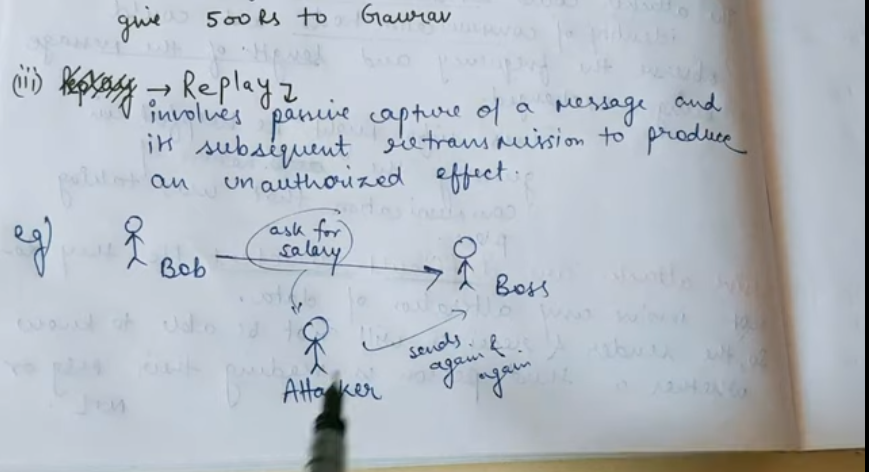 give 500 Rs to Gaurav
(iii) → Replay
involves passive capture of a message and
its subsequent retransmission to produce
an unauthorized effect.
eg)
ask for
salary
Bob
Boss
sends
again &
again
Attacker